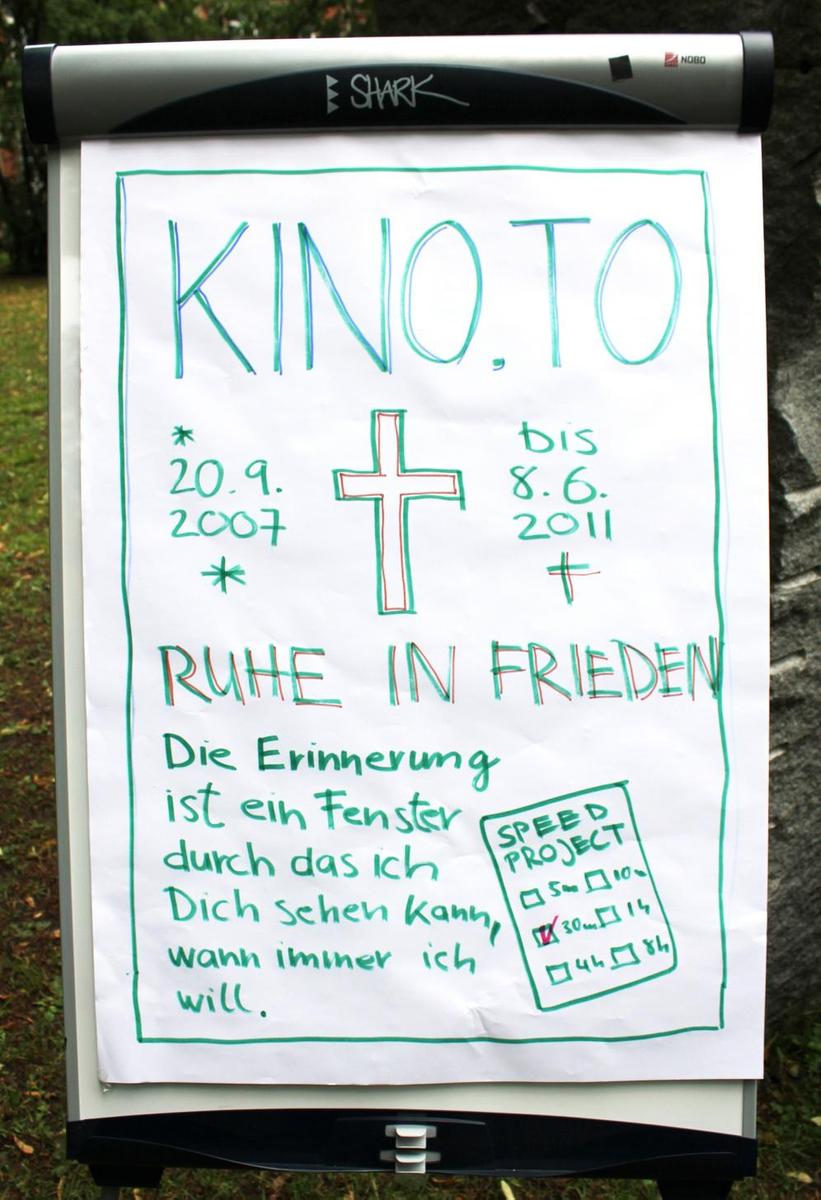 SHARK
NOBO
KINO.TO
*
20.9.
2007
*
bis
8.6.
2011
RUHE IN FRIEDEN
Die Erinnerung
ist ein Fenster
durch das ich
Dich sehen kann,
wann immer ich
will.
SPEED
PROJECT
5m 10m
30m 1h
4h 8h